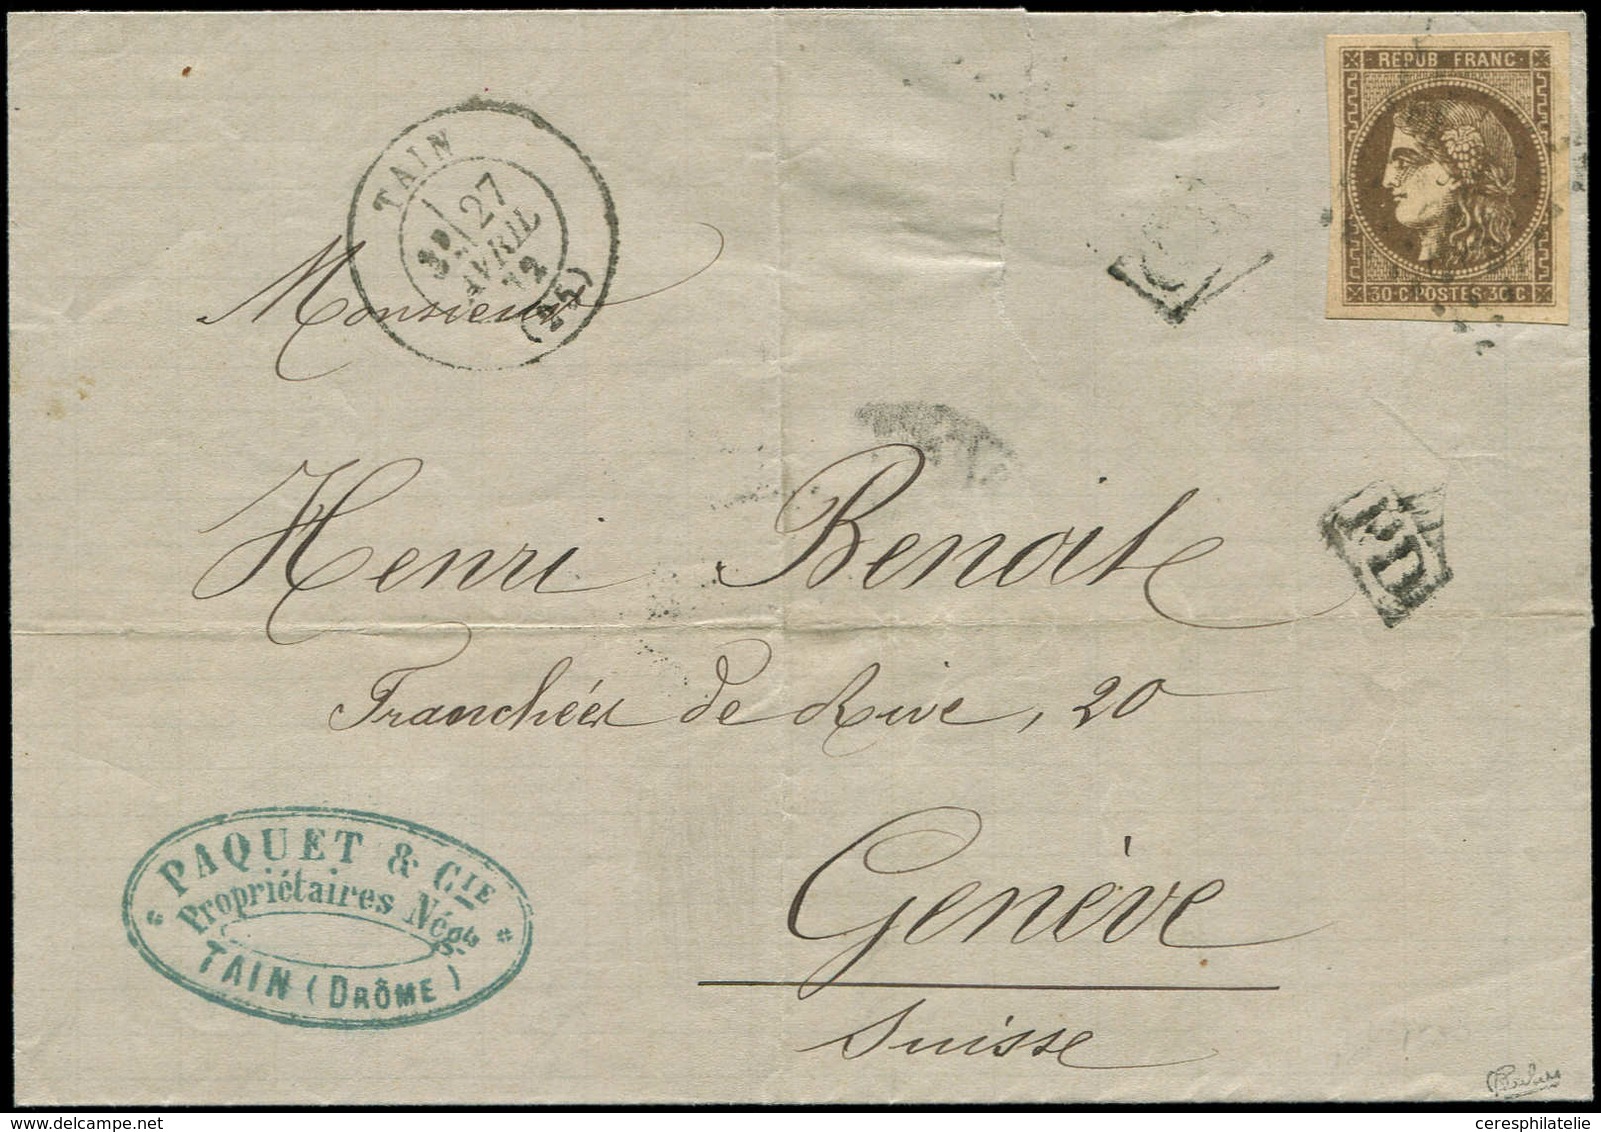 REPUB FRANC
30 C POSTES 30 C
TAIN
27
AVRIL
72
(25)
Monsieur
PD
Henri Benoit
Tranchées de Rive, 20
Genève
Suisse
PAQUET & CIE
Propriétaires Négts
TAIN (DRÔME)
ceresphilatelie